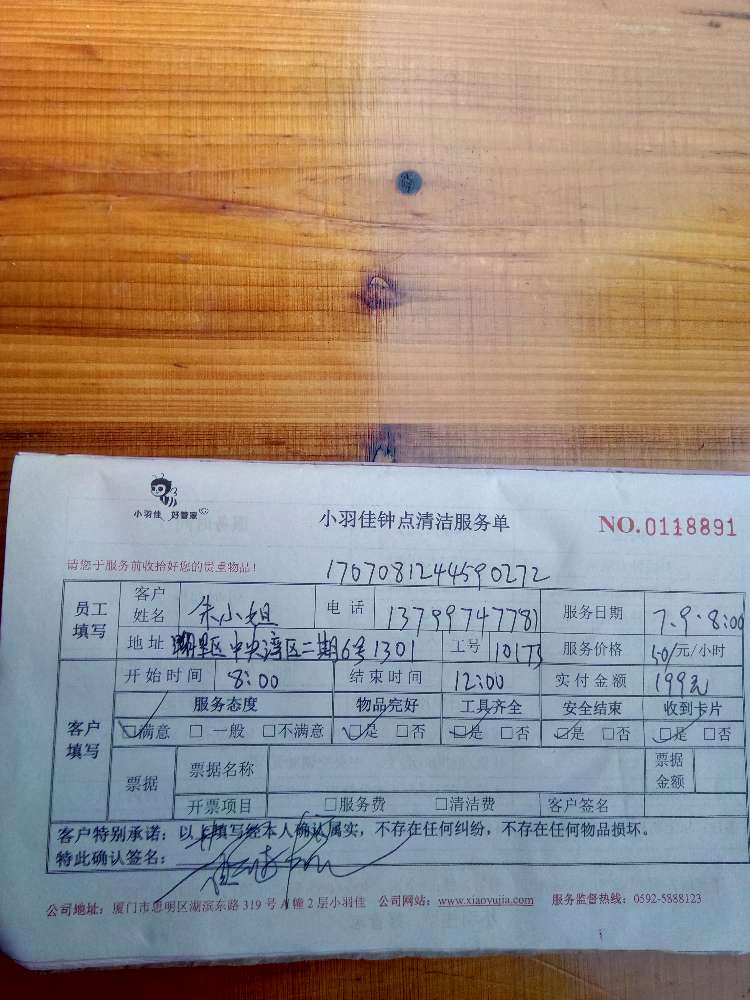 小羽佳 好管家
小羽佳钟点清洁服务单
NO.0118891
请您于服务前收拾好您的贵重物品！
1707081244590272
员工填写 客户姓名 朱小姐 电话 13799747781 服务日期 7.9.8:00
地址 湖里区中央湾区二期6号1301 工号 10173 服务价格 50/元/小时
客户填写 开始时间 8:00 结束时间 12:00 实付金额 199元
服务态度 物品完好 工具齐全 安全结束 收到卡片
☑满意 □一般 □不满意 ☑是 □否 ☑是 □否 ☑是 □否 ☑是 □否
票据 票据名称 票据金额
开票项目 □服务费 □清洁费 客户签名
客户特别承诺：以上填写经本人确认属实，不存在任何纠纷，不存在任何物品损坏。
特此确认签名：
公司地址：厦门市思明区湖滨东路 319 号 A 幢 2 层小羽佳 公司网站：www.xiaoyujia.com 服务监督热线：0592-5888123